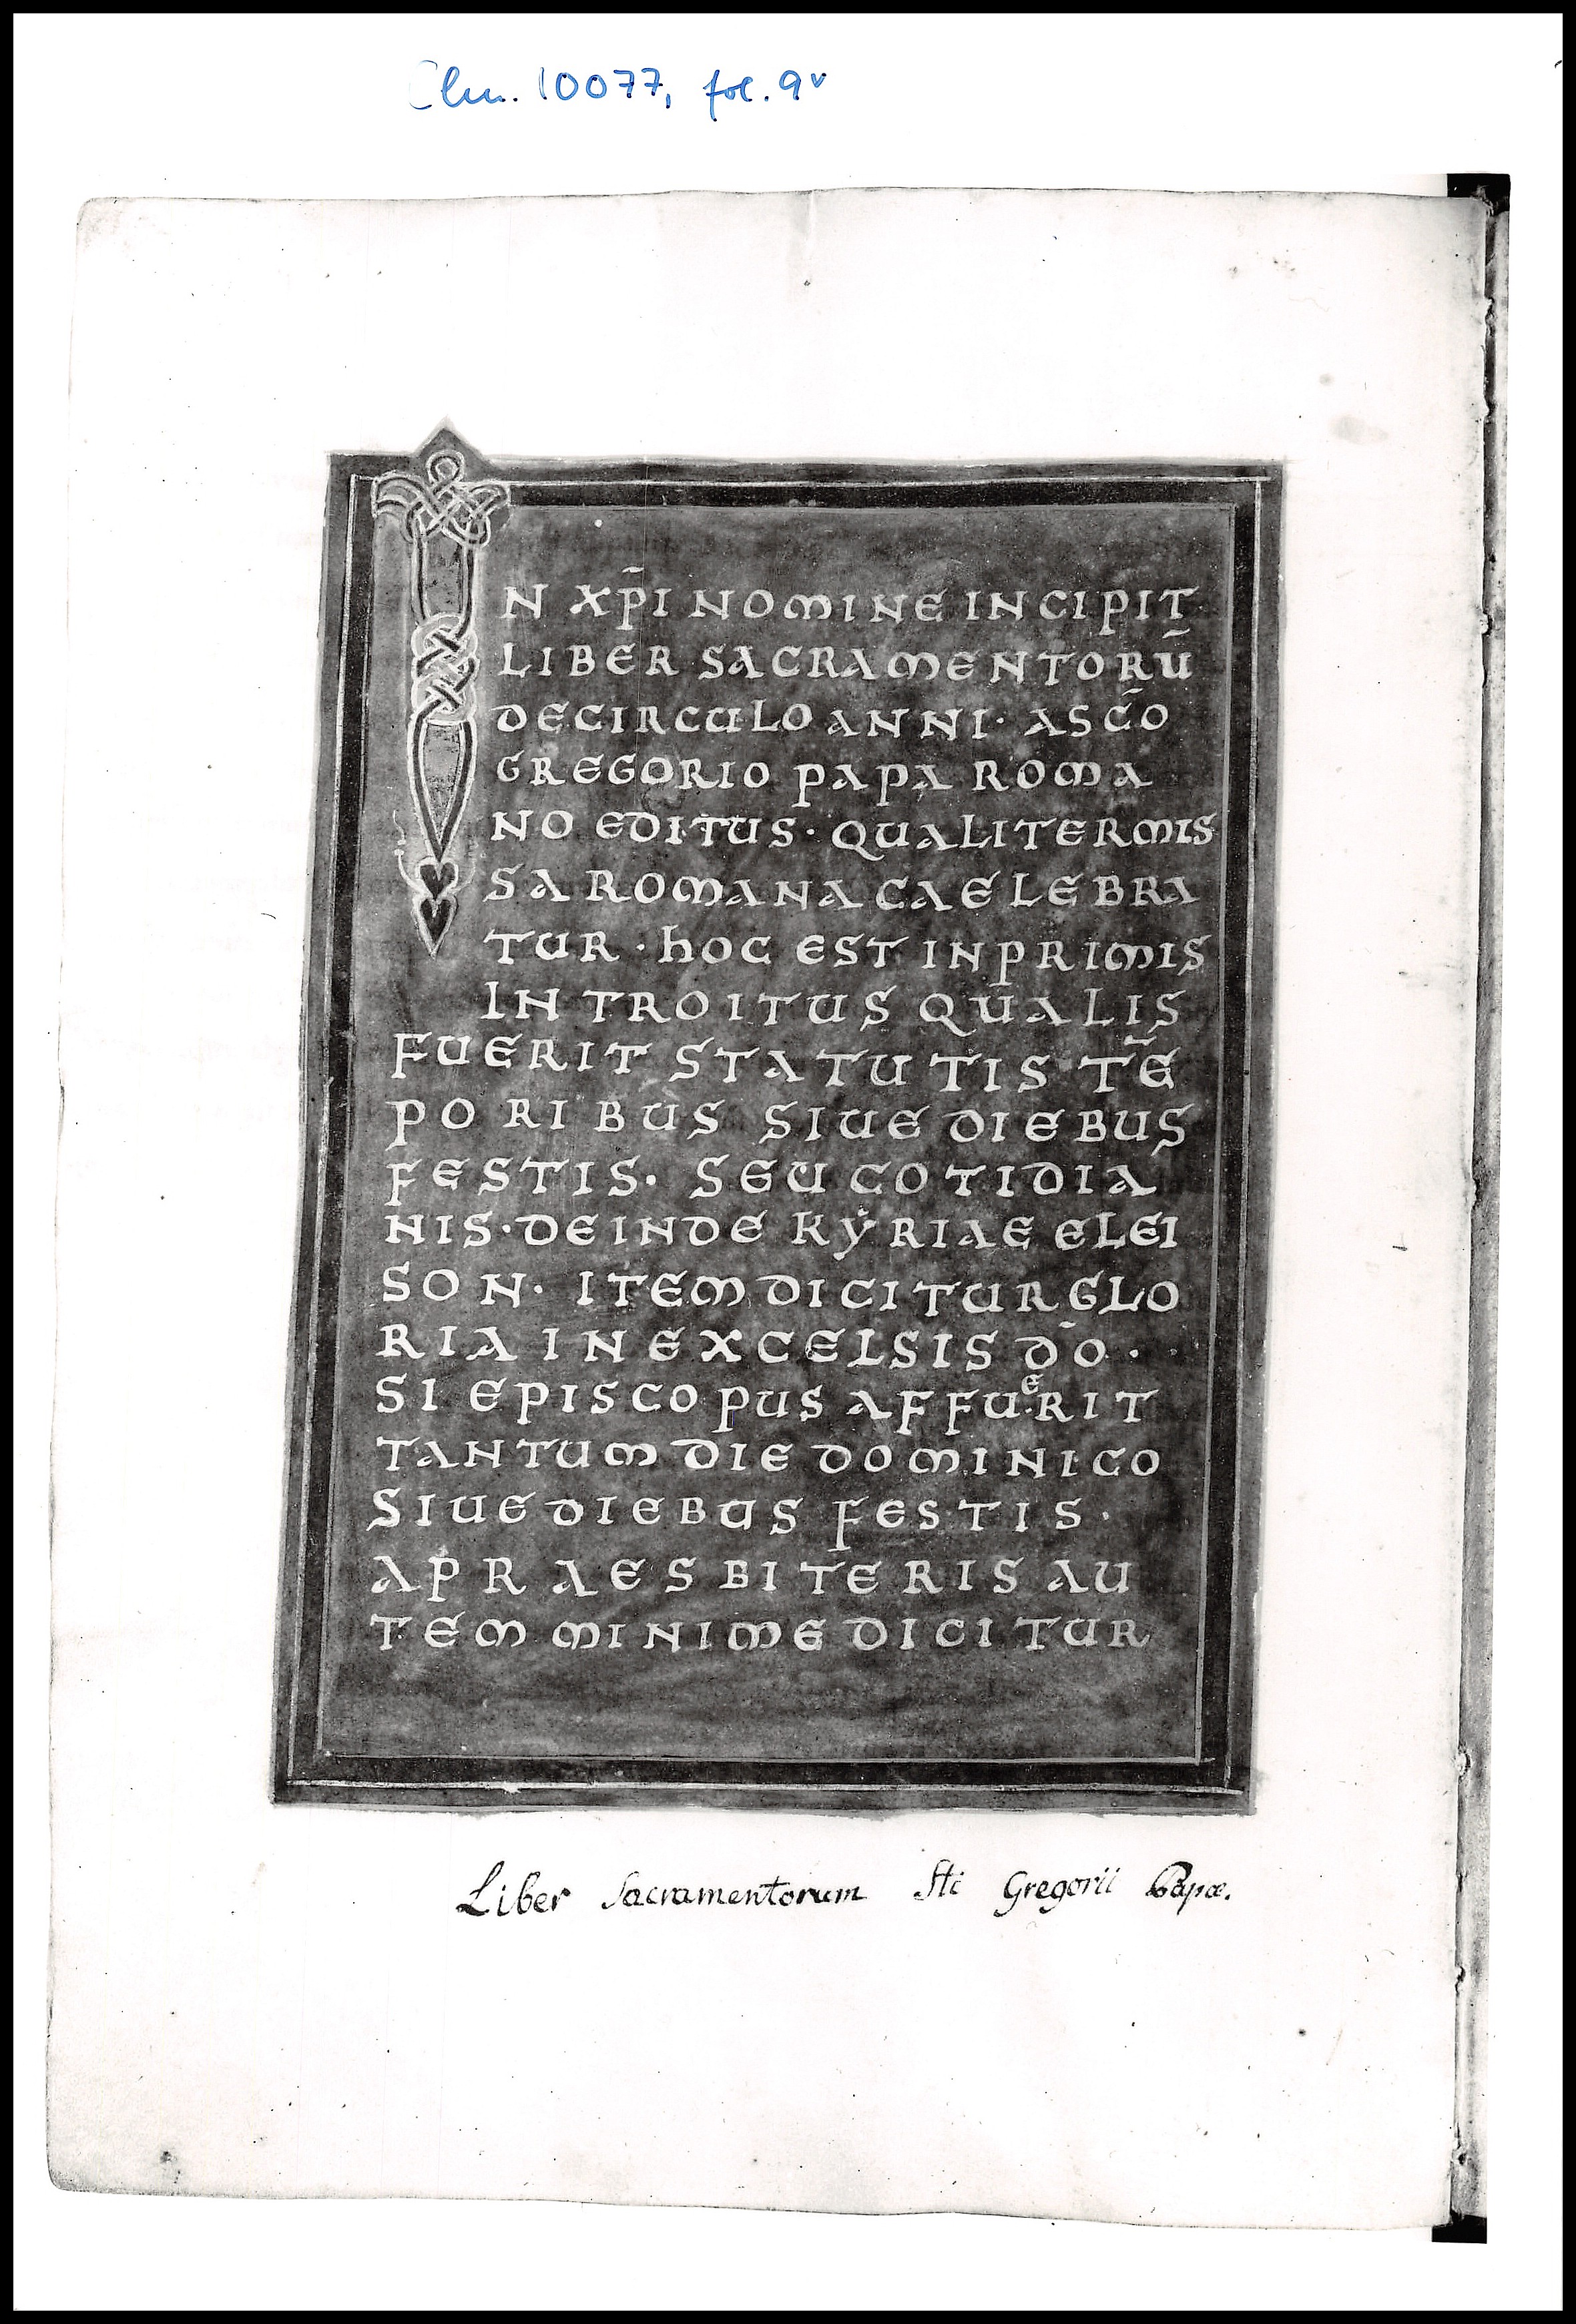 Clm. 10077, fol. 9v
IN XP̄I NOMINE INCIPIT
LIBER SACRAMENTORŪ
DECIRCULO ANNI · ASC̄O
GREGORIO PAPA ROMA
NO EDITUS · QUALITERMIS
SA ROMANA CAELEBRA
TUR · hOC EST INPRIMIS
INTROITUS QUALIS
FUERIT STATUTIS TĒ
PORIBUS SIUE DIEBUS
FESTIS · SEU COTIDIA
NIS · DEINDE KẎRIAE ELEI
SON · ITEM DICITUR GLO
RIA IN EXCELSIS D̄O ·
SI EPISCOPUS AFFUERIT
TANTUM DIE DOMINICO
SIUE DIEBUS FESTIS ·
APRAESBITERIS AU
TEM MINIME DICITUR
Liber Sacramentorum Sti Gregorii Papæ.